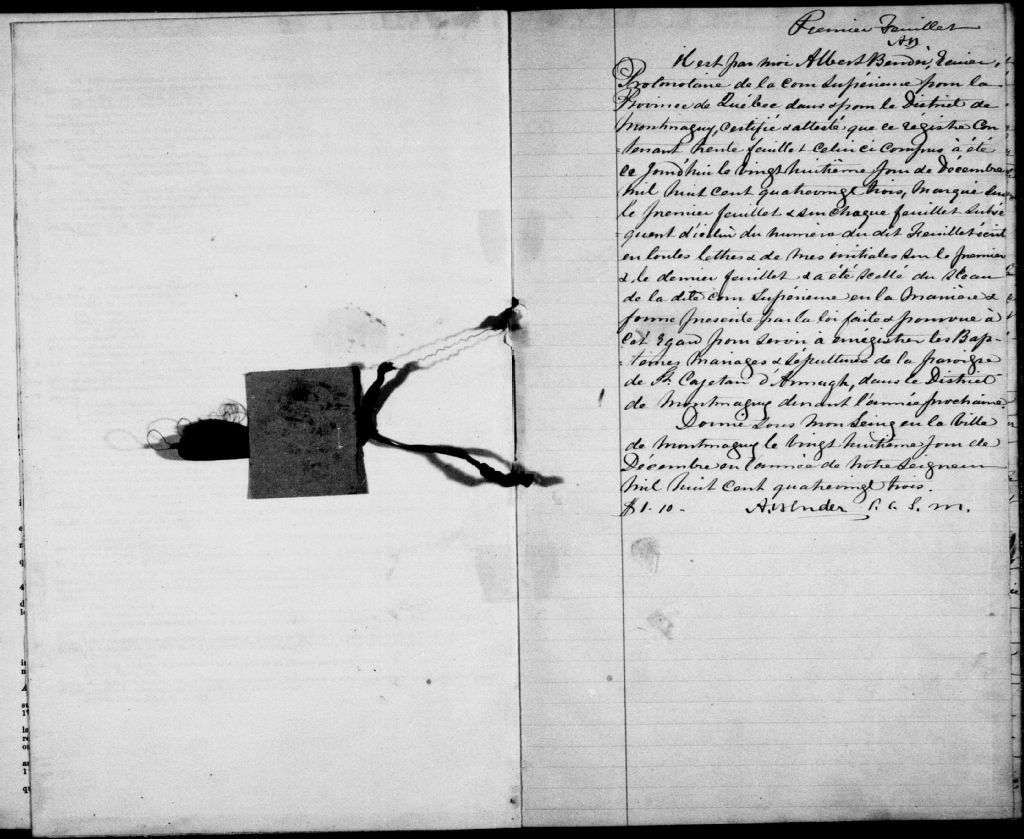 Premier Feuillet
AB
Il est par moi Albert Bender, Ecuier,
Protonotaire de la cour Supérieure pour la
Province de Québec dans & pour le District de
Montmagny, Certifié & attesté que ce régistre Con
-tenant trente feuillet Celui ci Compris à été
ce Jourd'hui le vingt huitième Jour de Décembre
mil huit cent quatrevingt trois, Marqué sur
le premier feuillet & sur chaque feuillet subsé
-quent d'icelui du numéro du dit Feuillet écrit
en toutes lettres & de mes initiales sur le premier
& le dernier feuillet & a été scellé du sceau
de la dite cour Supérieure en la Manière &
forme prescrite par la loi faite & pourvue à
cet Egard pour servir a enrégistrer les Bap-
-tèmes Mariages & Sépultures de la paroisse
de St. Cajetan d'Armagh, dans le District
de Montmagny durant l'année prochaine.
Donné Sous Mon Seing en la Ville
de Montmagny le vingt huitième Jour de
Décembre en l'année de notre Seigneur
mil huit Cent quatrevingt trois.
$1.10- A. Bender P. C. S. M.